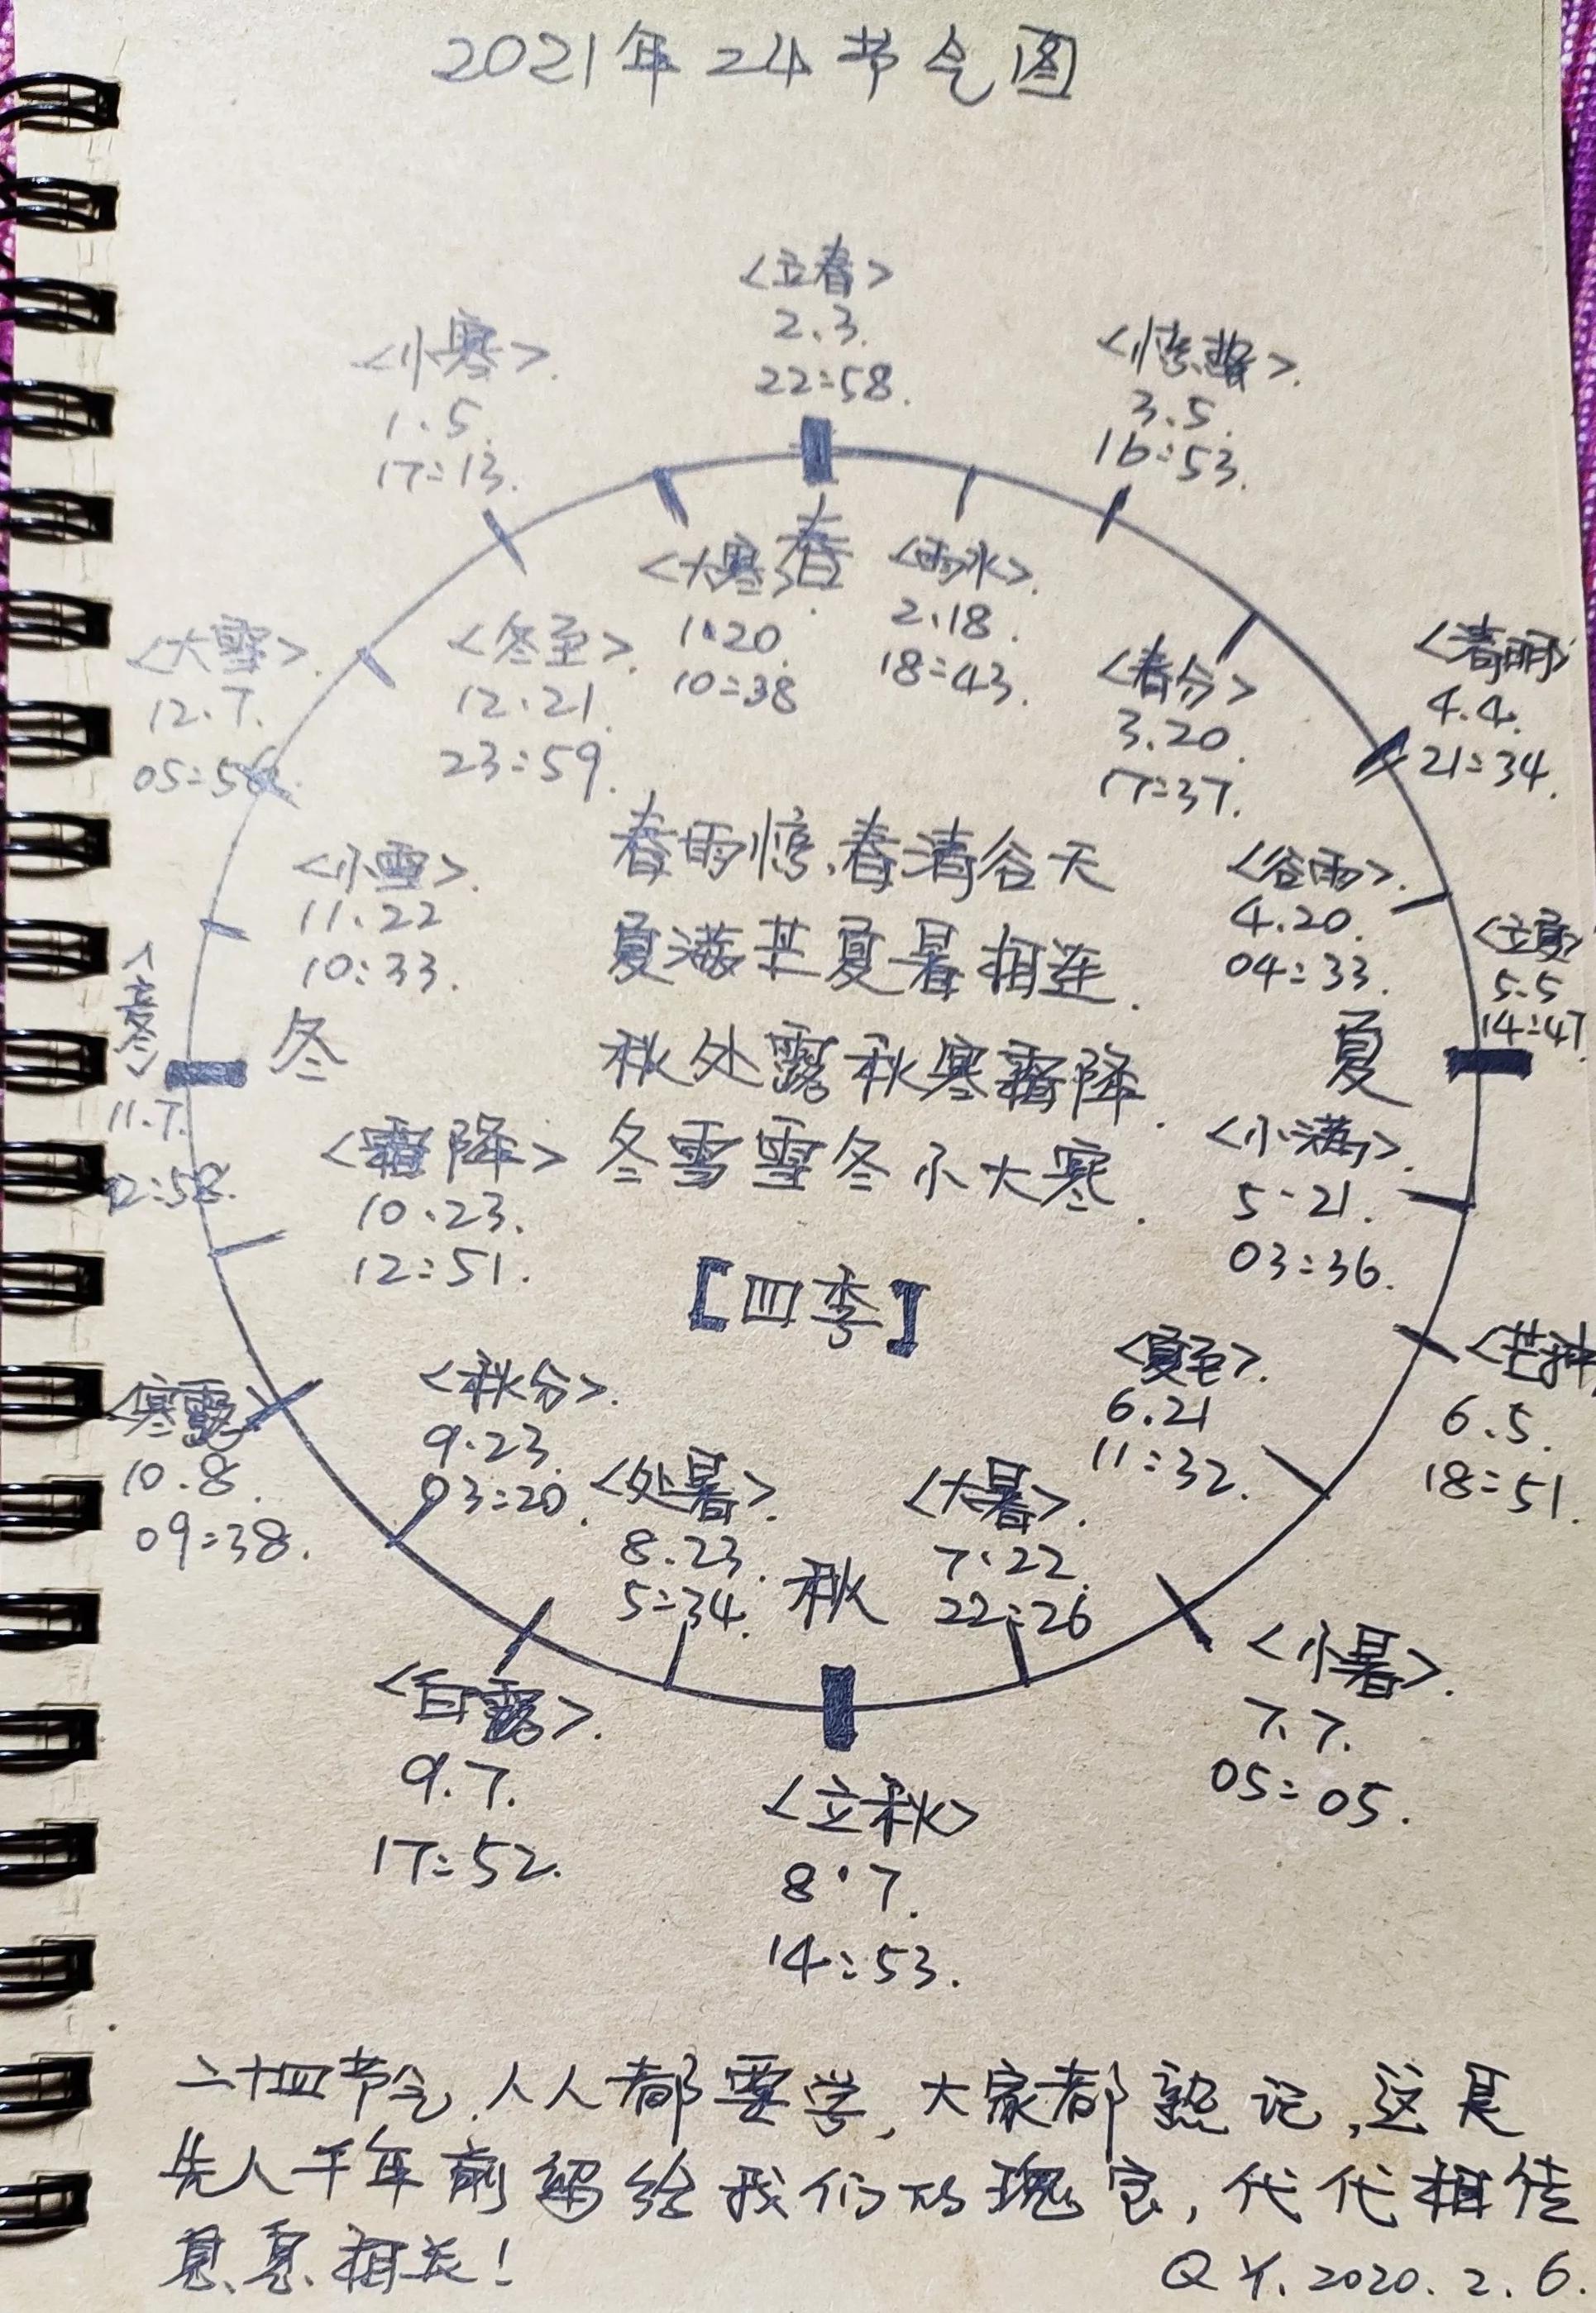 2021年24节气图
<立春>
2.3.
22:58.
<小寒>.
1.5.
17:13.
<惊蛰>.
3.5.
16:53.
春
<大寒>
1.20.
10:38
<雨水>.
2.18.
18:43.
<大雪>.
12.7.
<冬至>.
12.21.
23:59.
<春分>
3.20.
17:37.
<清明>
4.4.
21:34.
<小雪>.
11.22
10:33.
春雨惊春清谷天
夏满芒夏暑相连.
秋处露秋寒霜降.
冬雪雪冬小大寒.
[四季]
<谷雨>.
4.20.
04:33.
<立夏>
5.5
14:47.
夏
冬
<立冬>
11.7.
<霜降>
10.23.
12:51.
<小满>.
5.21.
03:36.
<夏至>.
6.21
11:32.
<芒种
6.5.
18:51.
<寒露
10.8.
09:38.
<秋分>.
9.23.
03:20.
<处暑>.
8.23.
5:34.
秋
<大暑>.
7.22.
22:26
<小暑>.
7.7.
05:05.
<白露>.
9.7.
17:52.
<立秋>
8.7.
14:53.
二十四节气,人人都要学,大家都熟记,这是
先人千年前留给我们的瑰宝,代代相传
息息相关!
QY.2020.2.6.